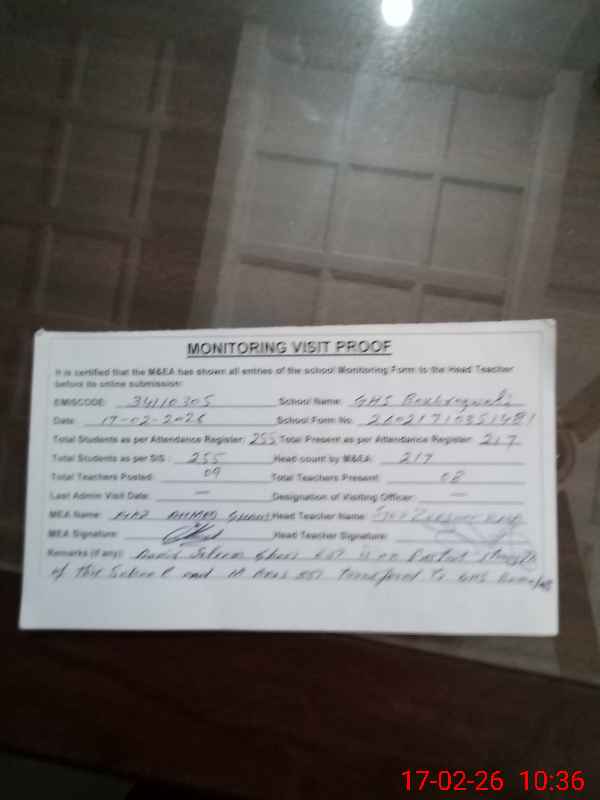 MONITORING VISIT PROOF
It is certified that the M&EA has shown all entries of the school Monitoring Form to the Head Teacher
before its online submission:
EMISCODE: 34110305 School Name: GHS
Date: 17-02-2026 School Form No:
Total Students as per Attendance Register: 255 Total Present as per Attendance Register: 217
Total Students as per SIS: 255 Head count by M&EA: 217
Total Teachers Posted: 09 Total Teachers Present: 08
Last Admin Visit Date: — Designation of Visiting Officer: —
MEA Name: AHMED Head Teacher Name:
MEA Signature: Head Teacher Signature:
Remarks (if any):
of this School and transfered to GHS
17-02-26 10:36